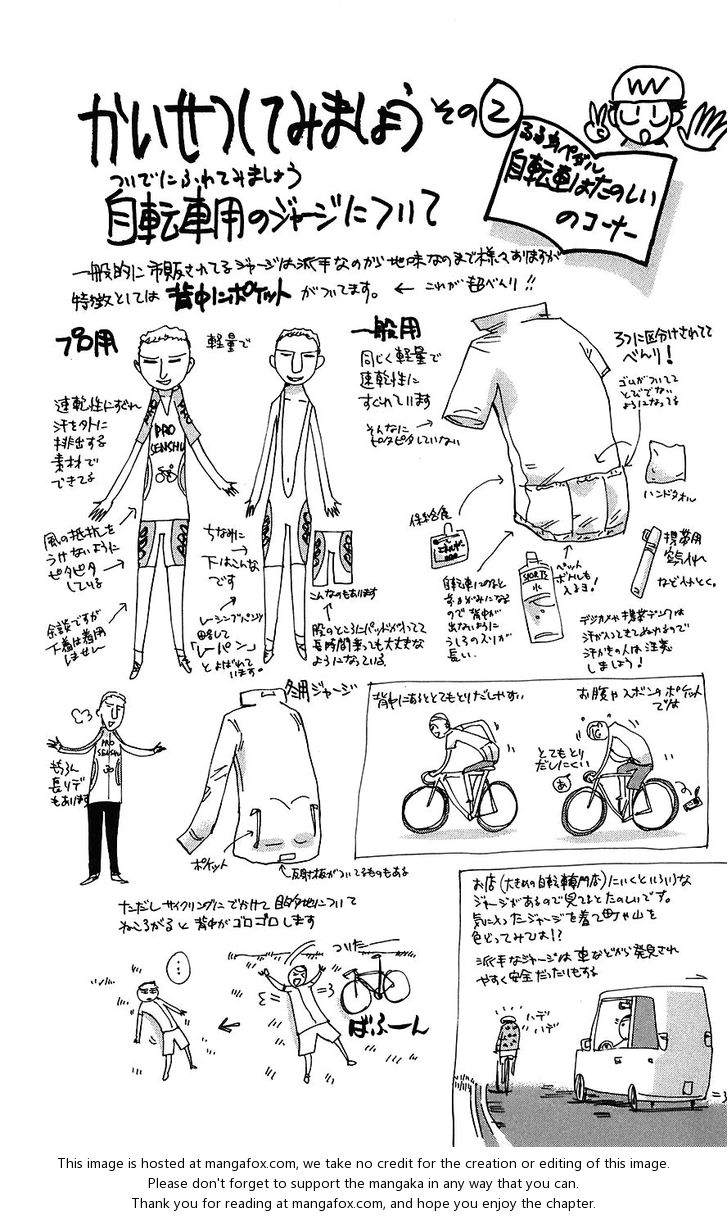 かいせつしてみましょう その②
ついでにふれてみましょう
自転車用のジャージについて
自転車はたのしい
のコーナー
一般的に市販されてるジャージは派手なのから地味なのまで様々ありますが
特徴としては 背中にポケット がついてます。 ← これが超べんり!!
プロ用
軽量で
速乾性にすぐれ
汗を外に
排出する
素材で
できてる
PRO
SENSHU
風の抵抗を
うけないように
ピタピタ
している
余談ですが
下着は着用
しません
ちなみに
下はこんな
です
レーシングパンツ
略して
「レーパン」
とよばれて
います。
こんなのもあります
股のところにパッドが入ってて
長時間乗っても大丈夫な
ようになっている
一般用
同じく軽量で
速乾性に
すぐれています
そんなに
ピタピタしていない
3つに区分けされてて
べんり!
ゴムがついてて
とびでない
ようになってる
ハンドタオル
補給食
自転車にのると
前かがみになる
ので背中が
出ないように
うしろの方が
長い
SPORTS
水
ペット
ボトルも
入るヨ!
携帯用
空気入れ
などなど。
デジカメや携帯テンワは
汗が入ってきてぬれるので
汗かきの人は注意
しましょう!
PRO
SENSHU
もちろん
長ソデ
もあります
冬用ジャージ
ポケット
反射板がついてるものもある
背中にあるととてもとりだしやすい
お腹やズボンのポケット
では
とてもとり
だしにくい
あ
ただしサイクリングにでかけて目的地について
ねころがると背中がゴロゴロします
ついたー
ばふーん
お店(大きめの自転車専門店)にいくといろいろな
ジャージがあるので見てるとたのしいです。
気に入ったジャージを着て町や山を
色どってみては!?
派手なジャージは車などから発見され
やすく安全だったりもする
ハデ
ハデ
This image is hosted at mangafox.com, we take no credit for the creation or editing of this image.
Please don't forget to support the mangaka in any way that you can.
Thank you for reading at mangafox.com, and hope you enjoy the chapter.